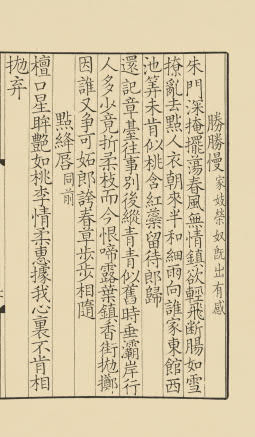 勝勝慢 家妓榮奴旣出有感
朱門深掩擺蕩春風無情鎮欲輕飛斷腸如雪
撩亂去點人衣朝來半和細雨向誰家東館西
池筭未肯似桃含紅蘂留待郎歸
還記章臺往事別後縱青青似舊時垂灞岸行
人多少竟折柔枝而今恨啼露葉鎮香街抛擲
因誰又爭可妬郎誇春草步步相隨
點絳唇 同前
檀口星眸艷如桃李情柔惠據我心裏不肯相
抛弃